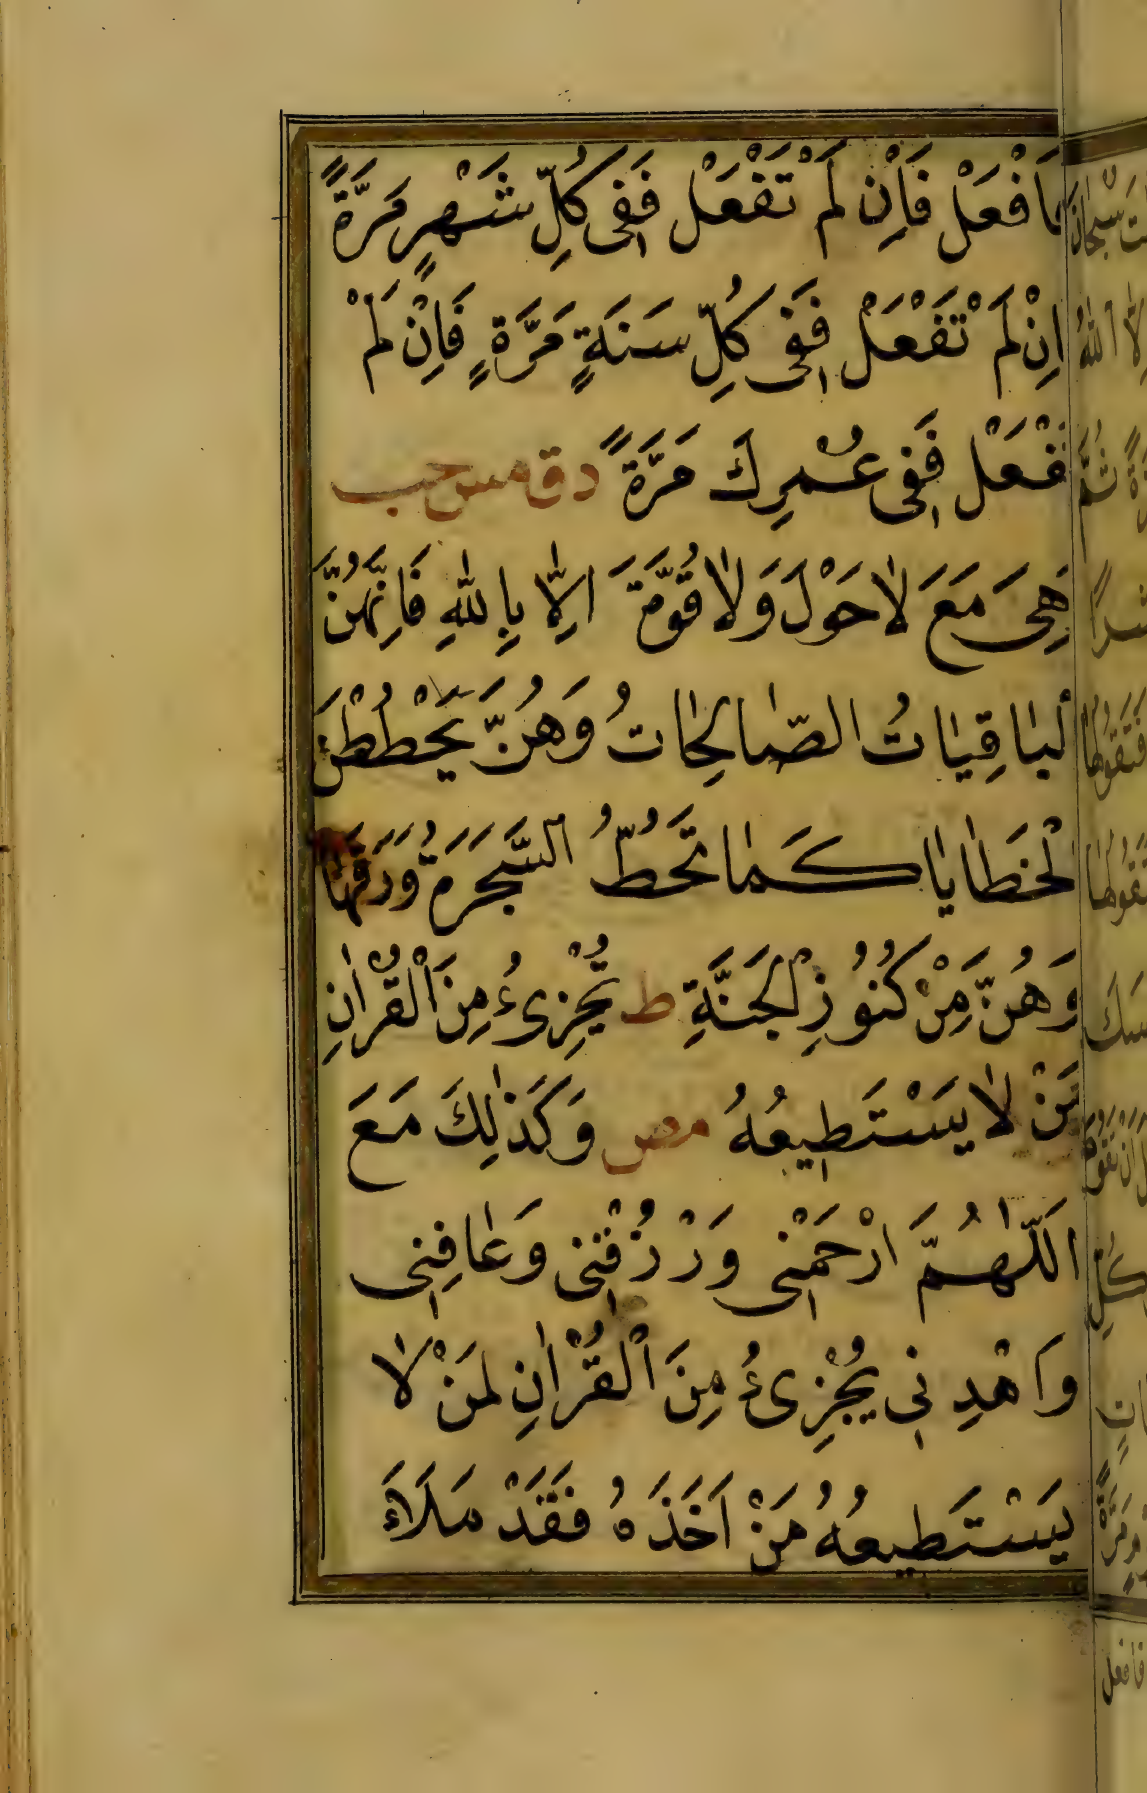 فَافْعَلْ فَاِنْ لَمْ تَفْعَلْ فَفِى كُلِّ شَهْرٍ مَرَّةً
اِنْ لَمْ تَفْعَلْ فَفِى كُلِّ سَنَةٍ مَرَّةٍ فَاِنْ لَمْ
تَفْعَلْ فَفِى عُمْرِكَ مَرَّةً د ق مس حب
هِىَ مَعَ لَا حَوْلَ وَلَا قُوَّةَ اِلَّا بِاللهِ فَاِنَّهُنَّ
الْبَاقِيَاتُ الصَّالِحَاتُ وَهُنَّ يَحْطُطْنَ
الْخَطَايَا كَمَا تَحُطُّ الشَّجَرَةُ وَرَقَهَا
وَهُنَّ مِنْ كُنُوزِ الْجَنَّةِ ط تُجْزِىءُ مِنَ الْقُرْاٰنِ
مَنْ لَا يَسْتَطِيعُهُ مص وَكَذٰلِكَ مَعَ
اَللّٰهُمَّ ارْحَمْنِى وَرْزُقْنِى وَعَافِنِى
وَاهْدِنِى يُجْزِىءُ مِنَ الْقُرْاٰنِ لِمَنْ لَا
يَسْتَطِيعُهُ مَنْ اَخَذَهُ فَقَدْ مَلَاَ